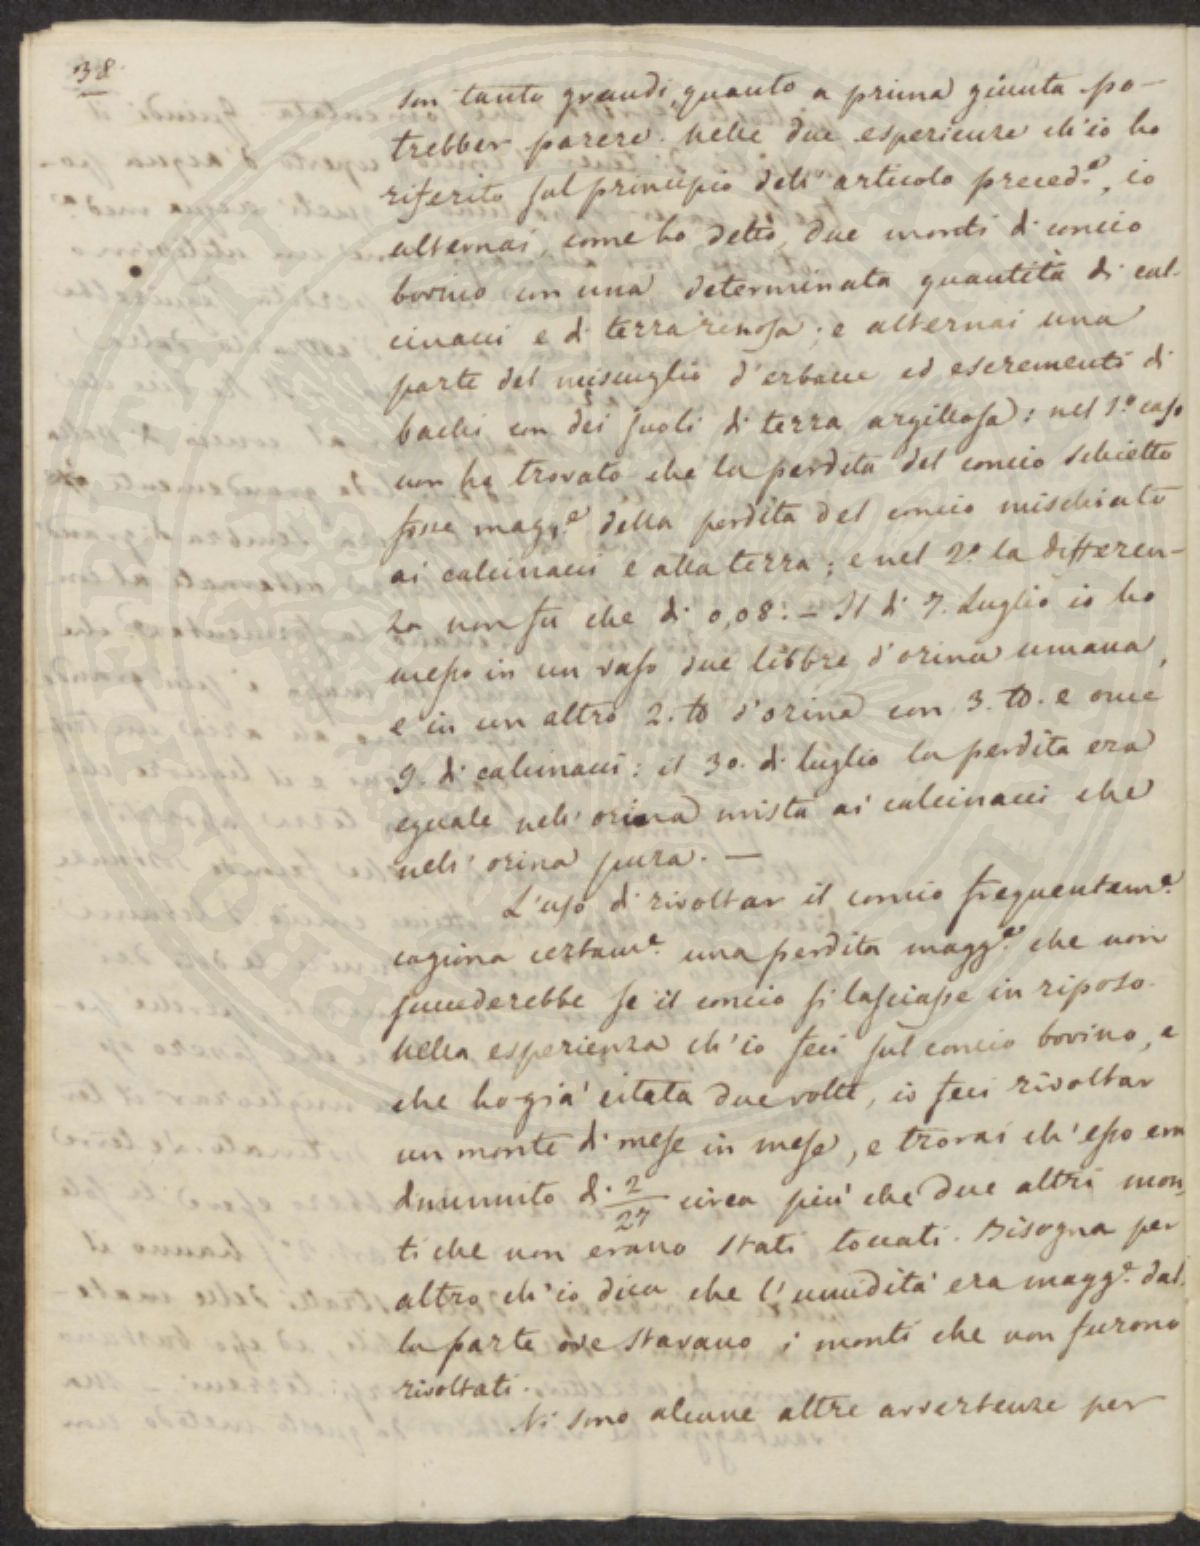 38.
son tanto grandi, quanto a prima giunta po-
trebber parere. Nelle due esperienze ch'io ho
riferito sul principio dell'articolo preced.e, io
alternai, come ho detto, due monti di concio
bovino con una determinata quantità di cal-
cinacci e di terra renosa; e alternai una
parte del miscuglio d'erbacce ed escrementi di
bachi con dei suoli di terra argillosa: nel 1.o caso
non ho trovato che la perdita del concio schietto
fosse magg.e della perdita del concio mischiato
ai calcinacci e alla terra; e nel 2.o la differen-
za non fu che di 0,08: - Il dì 7. Luglio io ho
messo in un vaso due libbre d'orina umana,
e in un altro 2. lb d'orina con 3. lb. e once
9. di calcinacci: il 30. di luglio la perdita era
eguale nell'orina mista ai calcinacci che
nell'orina pura. —
L'uso di rivoltar il concio frequentem.e
cagiona certam.e una perdita magg.e che non
succederebbe se il concio si lasciasse in riposo.
Nella esperienza ch'io feci sul concio bovino, e
che ho già citata due volte, io feci rivoltar
un monte di mese in mese, e trovai ch'esso era
diminuito di 2/27 circa più che due altri mon-
ti che non erano stati toccati. Bisogna per
altro ch'io dica che l'umidità era magg.e dal-
la parte ove stavano i monti che non furono
rivoltati.
Vi sono alcune altre avvertenze per